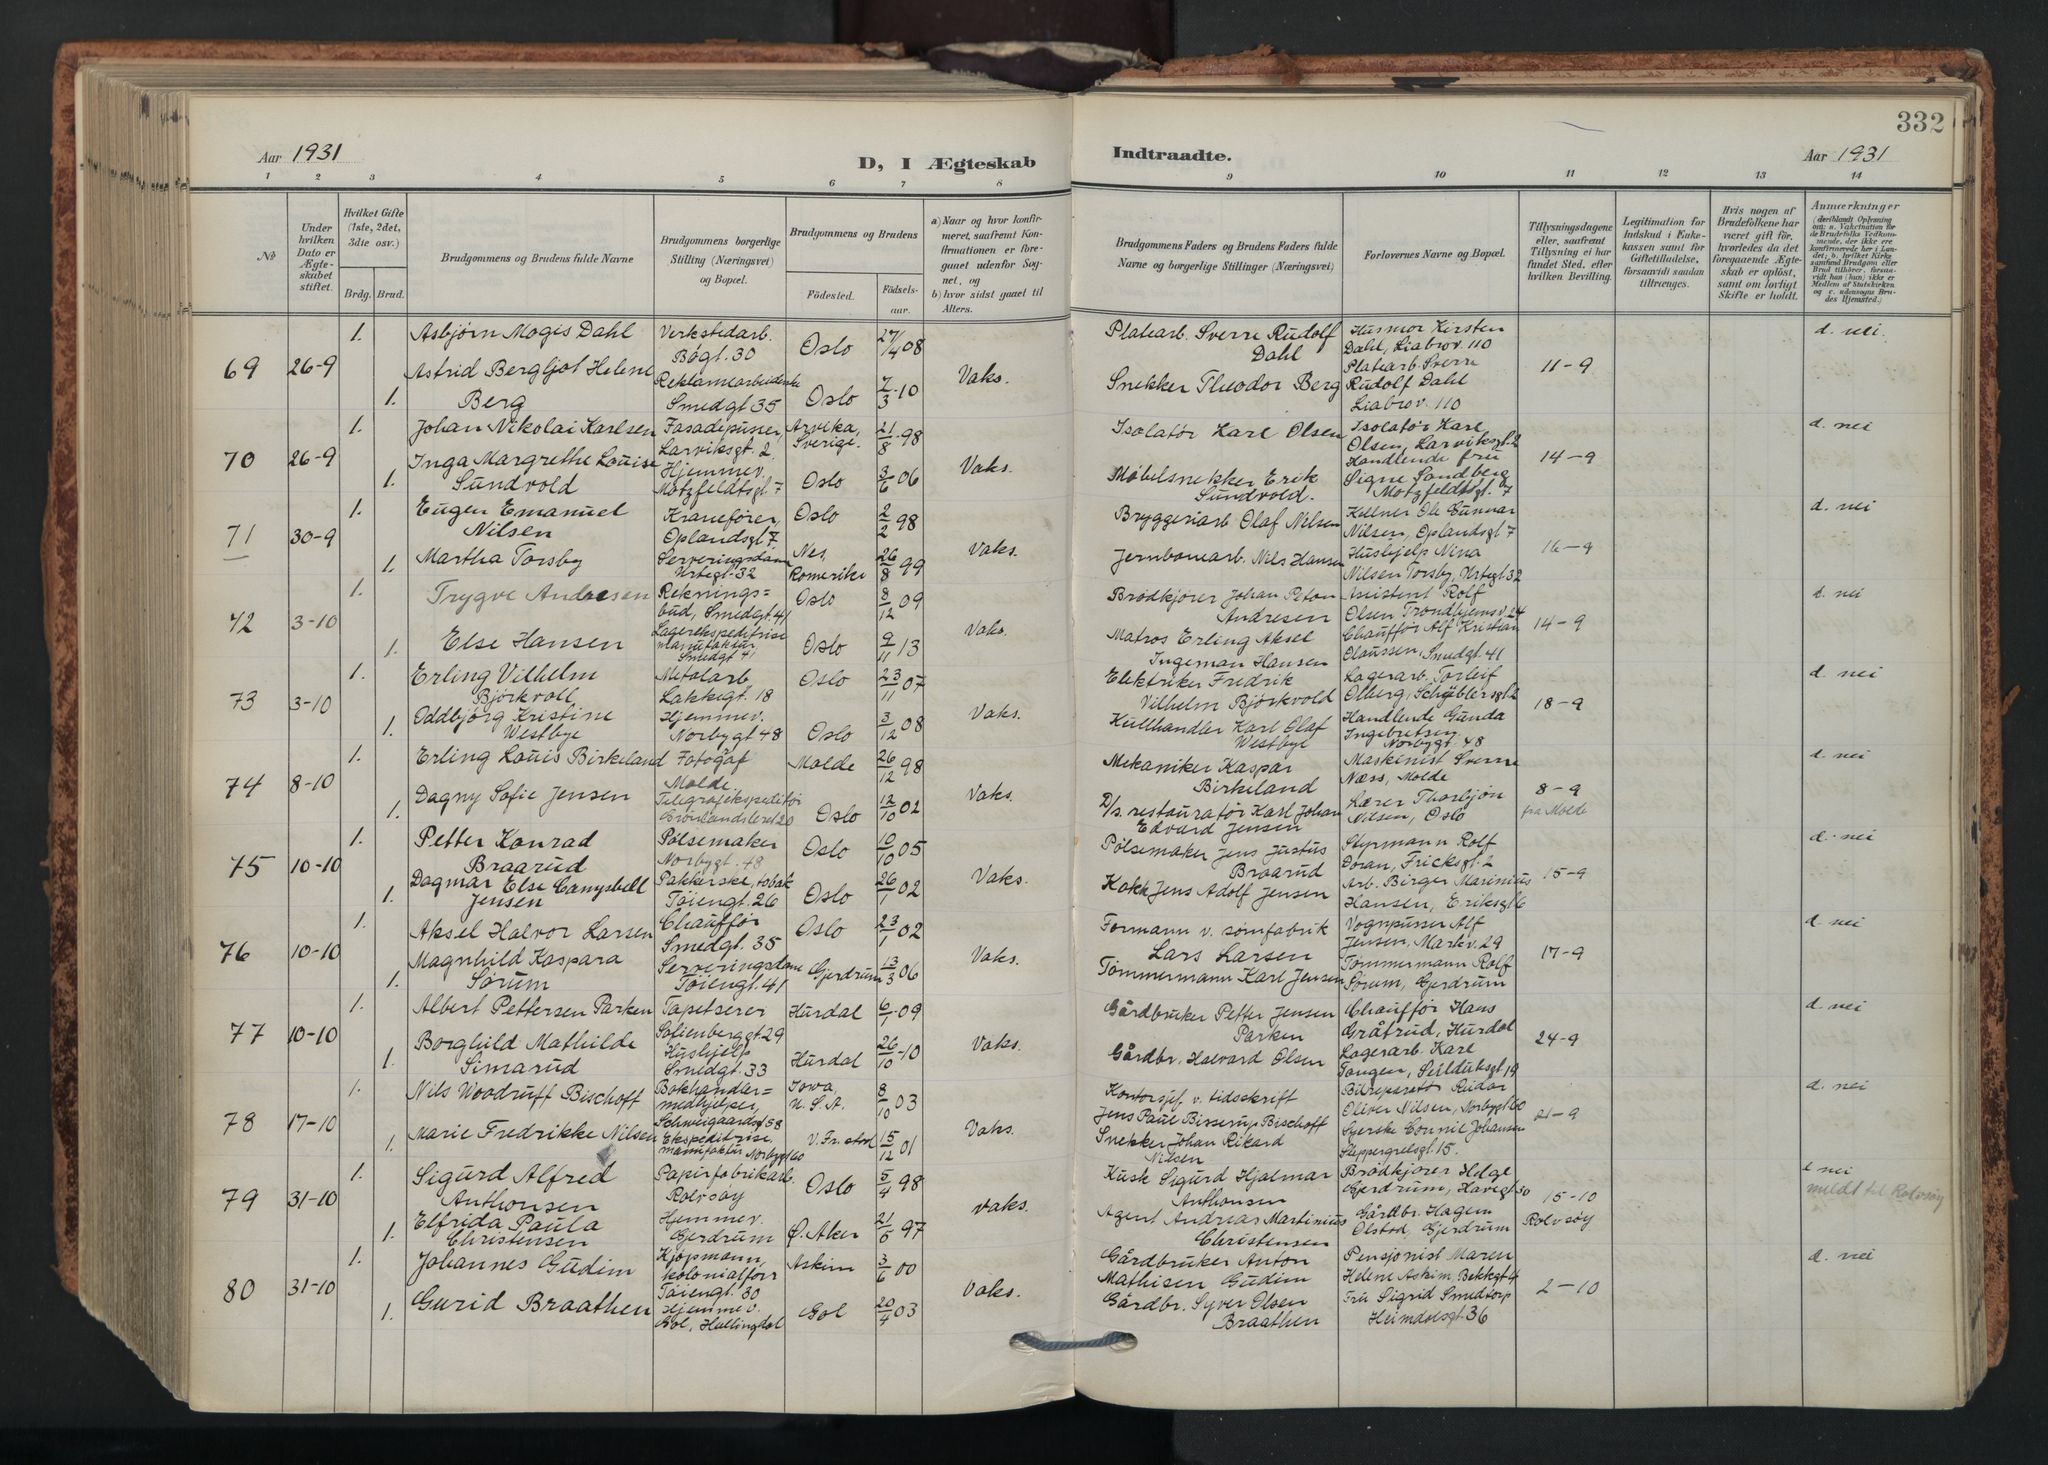 332
Aar 1931
D, I Ægteskab
Indtraadte.
Aar 1931
1 2 3 4 5 6 7 8
9 10 11 12 13 14
No
Under hvilken Dato er Ægteskabet stiftet.
Hvilket Gifte (1ste, 2det, 3die osv.)
Brdg. Brud.
Brudgommens og Brudens fulde Navne
Brudgommens borgerlige Stilling (Næringsvei) og Bopæl.
Brudgommens og Brudens
Födested. Födselsaar.
a) Naar og hvor konfirmeret, saafremt Konfirmationen er foregaaet udenfor Sognet, og
b) hvor sidst gaaet til Alters.
Brudgommens Faders og Brudens Faders fulde Navne og borgerlige Stillinger (Næringsvei)
Forlovernes Navne og Bopæl.
Tillysningsdagene eller, saafremt Tillysning ei har fundet Sted, efter hvilken Bevilling.
Legitimation for Indskud i Enkekassen samt for Giftetilladelse, forsaavidt saadan tiltrænges.
Hvis nogen af Brudefolkene har været gift før, hvorledes da det foregaaende Ægteskab er oplöst, samt om lovligt Skifte er holdt.
Anmærkninger
(deriblandt Oplysning om: a. Vakcination for de Brudefolks Vedkommende, der ikke ere konfirmerede her i Landet; b. hvilket Kirkesamfund Brudgom eller Brud tilhörer, forsaavidt han (hun) ikke er Medlem af Statskirken og c. udensogns Brudes Hjemsted.)
69 26-9
1. Asbjørn Mogis Dahl
Verkstedarb. Bøgt. 30
Oslo 27/4 08
Platearb. Sverre Rudolf Dahl
Husmor Kirsten Dahl, Liabrov. 110
d. nei
1. Astrid Bergljot Helene Berg
Reklamearbeiderske Smedgt. 35
Oslo 7/3-10
Vaks.
Snekker Theodor Berg
Platearb. Sverre Rudolf Dahl Liabrov. 110
11-9
70 26-9
1. Johan Nikolai Karlsen
Fasadepusser, Larviksgt. 2.
Arvika, Sverige. 21/8-98
Isolatør Karl Olsen
Isolatør Karl Olsen, Larviksgt. 2
d. nei
1. Inga Margrethe Louise Sundvold
Hjemmev. Motzfeldtsgt. 7
Oslo 3/6 06
Vaks.
Møbelsnekker Erik Sundvold.
Handlende fru Signe Sandberg Motzfeldtsgt. 7
14-9
71 30-9
1. Eugen Emanuel Nilsen
Kranefører, Oplandsgt. 7
Oslo 2/2 98
Bryggeriarb Olaf Nilsen
Kellner Ole Gunnar Nilsen, Oplandsgt. 7
d. nei
1. Martha Torsby
Serveringsdame Urtegt. 32
Nes, Romerike 26/8 99
Vaks.
Jernbanearb. Nils Hansen
Hushjelp Nina Nilsen Torsby, Urtegt. 32
16-9
72 3-10
1. Trygve Andresen
Rekningsbud, Smedgt. 41
Oslo 8/12 09
Brødkjører Johan Peton Andresen
Assistent Rolf Olsen Trondhjemsv. 24
d. nei
1. Else Hansen
Lagerekspeditrise manufaktur Smedgt 41
Oslo 9/11 13
Vaks.
Matros Erling Aksel Ingeman Hansen
Chauffør Alf Kristian Olaussen, Smedgt. 41
14-9
73 3-10
1. Erling Vilhelm Bjørkvoll
Metalarb Lakkegt. 18
Oslo 23/11 07
Elektriker Fredrik Vilhelm Bjørkvold
Lagerarb. Torleif Olberg, Schøblersgt. 2
d. nei
1. Oddbjørg Kristine Westbye
Hjemmev. Norbygt 48
Oslo 3/12 08
Vaks.
Kullhandler Karl Olaf Westbye
Handlende Gunda Ingebretsen Norbygt. 48
18-9
74 8-10
1. Erling Louis Birkeland
Fotograf Molde
Molde 26/12 98
Mekaniker Kaspar Birkeland
Maskinist Sverre Næss, Molde
d. nei
1. Dagny Sofie Jensen
Telegrafekspeditør Grønlandsleret 20
Oslo 12/10 02
Vaks.
D/s. restauratør Karl Johan Edvard Jensen
Lærer Thorbjøn Nilsen, Oslo
8-9 fra Molde
75 10-10
1. Petter Konrad Braarud
Pølsemaker Norbygt. 48
Oslo 10/10 05
Pølsemaker Jens Justus Braarud
Styrmann Rolf Doran, Fricksgt. 2
d. nei
1. Dagmar Else Campbell Jensen
Pakkerske, tobak Tøiengt. 26
Oslo 26/1 02
Vaks.
Kokk Jens Adolf Jensen
Arb. Birger Marinius Hansen, Eriksgt 6
15-9
76 10-10
1. Aksel Halvor Larsen
Chauffør Smedgt. 35
Oslo 23/1 02
Formann v. sømfabrik Lars Larsen
Vognpusser Alf Jensen, Markv. 29
d. nei
1. Magnhild Kaspara Sørum
Serveringsdame Tøiengt. 41
Gjerdrum 13/3 06
Vaks.
Tømmermann Karl Jensen
Tømmermann Rolf Sørum, Gjerdrum
17-9
77 10-10
1. Albert Pettersen Parken
Tapetserer Sofienberggt. 29
Hurdal 6/1-09
Gårdbruker Petter Jensen Parken
Chauffør Hans Gråtrud, Hurdal
d. nei
1. Borghild Mathilde Simarud
Hushjelp Smedgt. 33
Hurdal 26/10-10
Vaks.
Gårdbr. Halvard Olsen
Lagerarb. Karl Tangen, Seilduksgt 19
24-9
78 17-10
1. Nils Woodruff Bischoff
Bokhandlermedhjelper, Schweigaardsgt 58
Iowa, U.S.A. 8/10 03
Kontorsjef v. tidsskrift Jens Paul Bisserup Bischoff
Bilreparatør Reidar Oliver Nilsen, Norbygt 60
d. nei
1. Marie Fredrikke Nilsen
Ekspeditrise, manufaktur Norbygt 60
V. Fr. stad 15/12 01
Vaks.
Snekker Johan Rikard Nilsen
Syerske Connie Johansen Steppergrelsgt 15.
21-9
79 31-10
1. Sigurd Alfred Anthonsen
Papirfabrikarb. Rolvsøy
Oslo 5/4 98
Kusk Sigurd Hjalmar Anthonsen
Brødkjører Helge Gjerdrum, Havegt 50
nei
meldt til Rolvsøy
1. Elfrida Paula Christensen
Hjemmev. Gjerdrum
Ø. Aker 21/5 97
vaks.
Agent Andreas Martinius Christensen
Gårdbr. Hagen Olstad, Gjerdrum
15-10 Rolvsøy
80 31-10
1. Johannes Gudim
Kjøpmann, kolonialforr Tøiengt. 30
Askim 3/6 00
Gårdbruker Anton Mathisen Gudim
Pensjonist Maren Helene Askim, Bekkgt 4
d. nei
1. Gurid Braathen
Hjemmev. Gol, Hallingdal
Gol 20/4 03
Vaks.
Gårdbr. Syver Olsen Braathen
Fru Sigrid Smedtorp Heimdalsgt 36
2-10